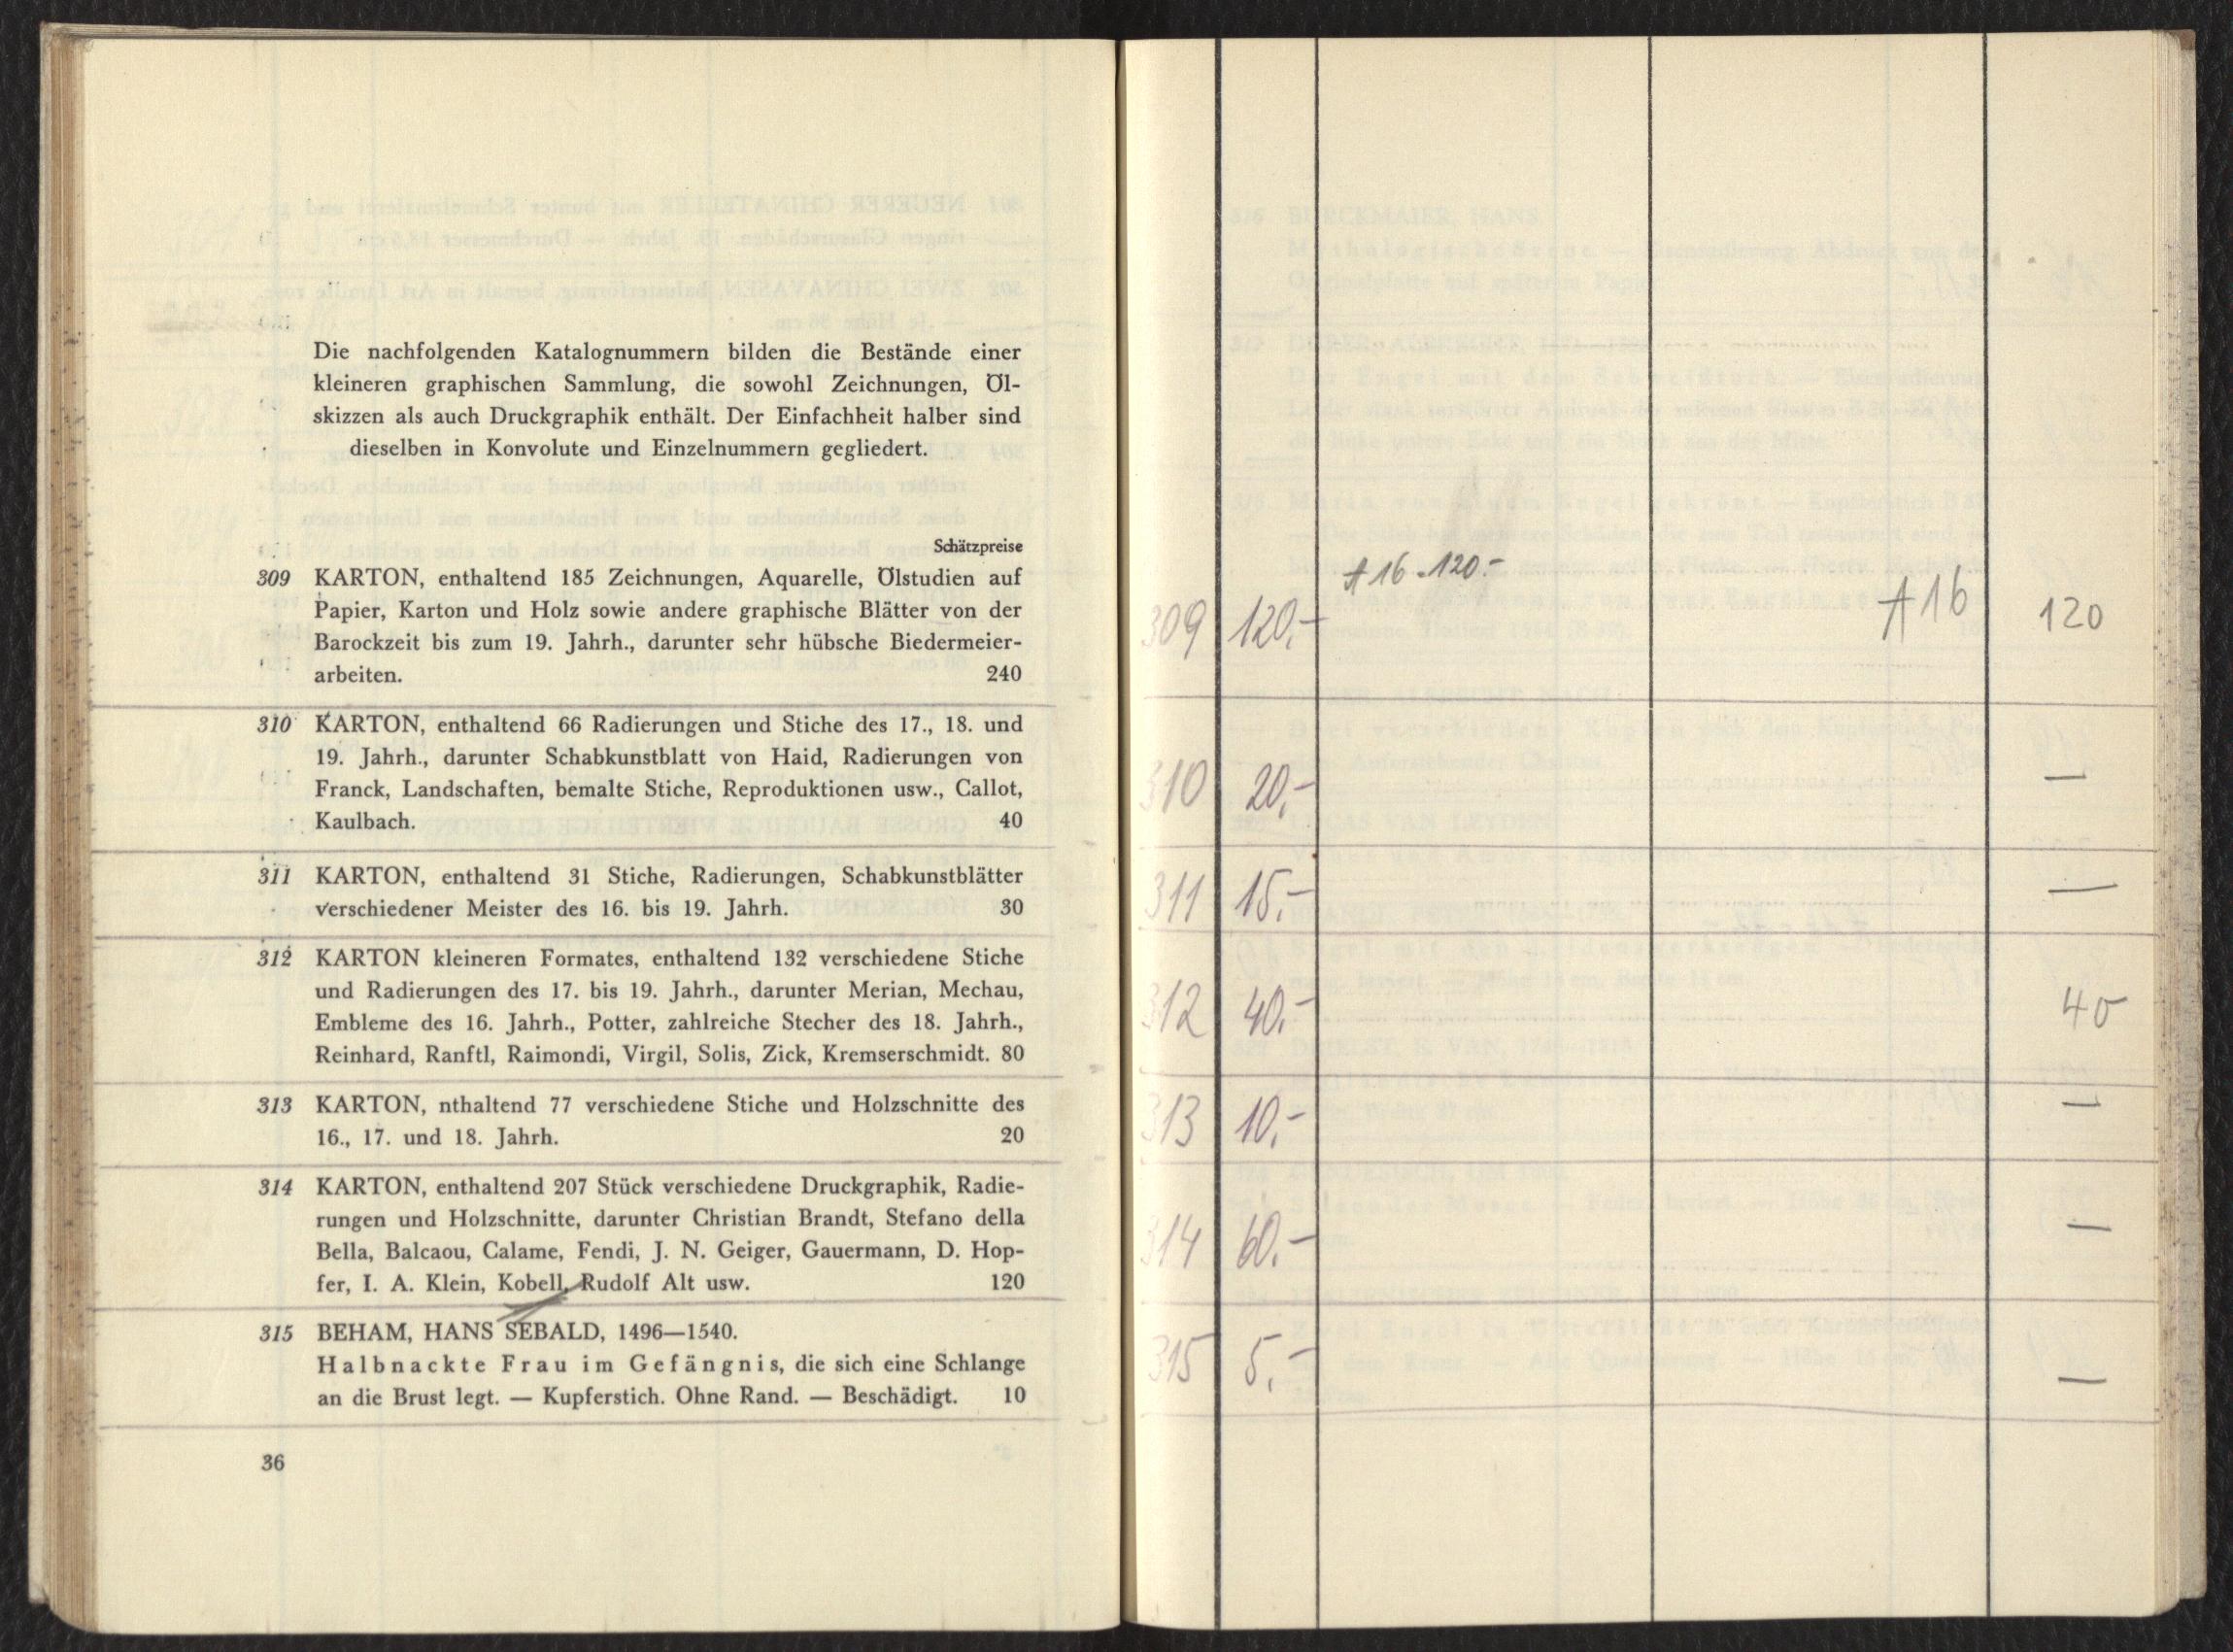 Die nachfolgenden Katalognummern bilden die Bestände einer
kleineren graphischen Sammlung, die sowohl Zeichnungen, Öl-
skizzen als auch Druckgraphik enthält. Der Einfachheit halber sind
dieselben in Konvolute und Einzelnummern gegliedert.
Schätzpreise
309 KARTON, enthaltend 185 Zeichnungen, Aquarelle, Ölstudien auf
Papier, Karton und Holz sowie andere graphische Blätter von der
Barockzeit bis zum 19. Jahrh., darunter sehr hübsche Biedermeier-
arbeiten. 240
310 KARTON, enthaltend 66 Radierungen und Stiche des 17., 18. und
19. Jahrh., darunter Schabkunstblatt von Haid, Radierungen von
Franck, Landschaften, bemalte Stiche, Reproduktionen usw., Callot,
Kaulbach. 40
311 KARTON, enthaltend 31 Stiche, Radierungen, Schabkunstblätter
verschiedener Meister des 16. bis 19. Jahrh. 30
312 KARTON kleineren Formates, enthaltend 132 verschiedene Stiche
und Radierungen des 17. bis 19. Jahrh., darunter Merian, Mechau,
Embleme des 16. Jahrh., Potter, zahlreiche Stecher des 18. Jahrh.,
Reinhard, Ranftl, Raimondi, Virgil, Solis, Zick, Kremserschmidt. 80
313 KARTON, nthaltend 77 verschiedene Stiche und Holzschnitte des
16., 17. und 18. Jahrh. 20
314 KARTON, enthaltend 207 Stück verschiedene Druckgraphik, Radie-
rungen und Holzschnitte, darunter Christian Brandt, Stefano della
Bella, Balcaou, Calame, Fendi, J. N. Geiger, Gauermann, D. Hop-
fer, I. A. Klein, Kobell, Rudolf Alt usw. 120
315 BEHAM, HANS SEBALD, 1496—1540.
Halbnackte Frau im Gefängnis, die sich eine Schlange
an die Brust legt. — Kupferstich. Ohne Rand. — Beschädigt. 10
36
A 16 120.-
309 120,- A 16 120
310 20,- —
311 15,- —
312 40,- 40
313 10,- —
314 60,- —
315 5,- —